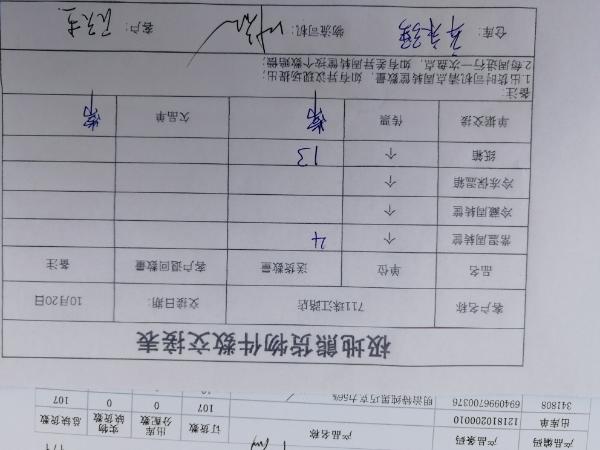 产品编码 产品条码 产品名称 订货数 出库分配数 实物缺货数 总缺货数
出库单 1218102000010
341808 6940996700376 明治特纯黑巧克力56% 107 0 0 107
极地熊货物件数交接表
客户名称 711珠江路店 交接日期: 10月20日
品名 单位 送货数量 客户退回数量 备注
常温周转筐 个 4
冷藏周转筐 个
冷冻保温箱 个
纸箱 个 13
单据交接 传票 欠品单
备注:
1.出货时司机清点周转筐数量,如有异议现场提出;
2.每周进行一次盘点,如有差异周转筐按个数赔偿;
仓库: 物流司机: 客户: